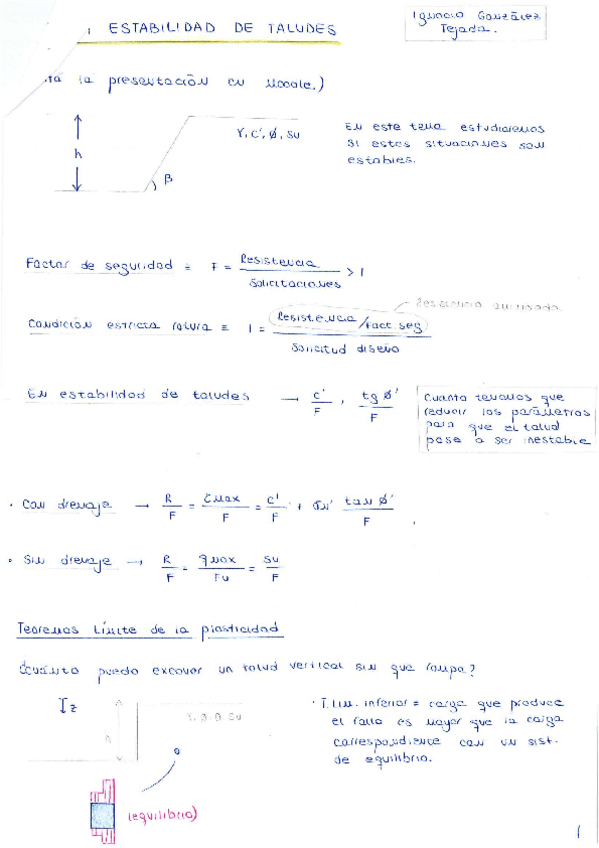 : ESTABILIDAD DE TALUDES
Ignacio González
Tejada.
la presentación en Moodle.)
h
γ, c', ø, Su
β
En este tema estudiaremos
si estas situaciones son
estables.
Factor de seguridad = F = Resistencia / Solicitaciones > 1
Resistencia minorada
Condición estricta rotura = 1 = Resistencia/Fact seg / Solicitud diseño
En estabilidad de taludes → c'/F , tg ø'/F
Cuanto tenemos que
reducir los parámetros
para que el talud
pase a ser inestable
· Con drenaje → R/F = τmax/F = c'/F + σn' tan ø'/F
· Sin drenaje → R/F = τmax/Fu = Su/F
Teoremas Límite de la plasticidad
¿Cuánto puedo excavar un talud vertical sin que rompa?
I z
h
Su
(equilibrio)
· T. Lim. inferior = carga que produce
el fallo es mayor que la carga
correspondiente con un sist.
de equilibrio.
1